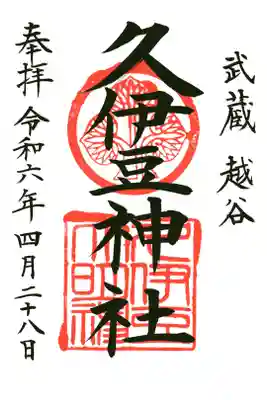 武蔵 越谷
久伊豆神社
奉拝 令和六年四月二十八日